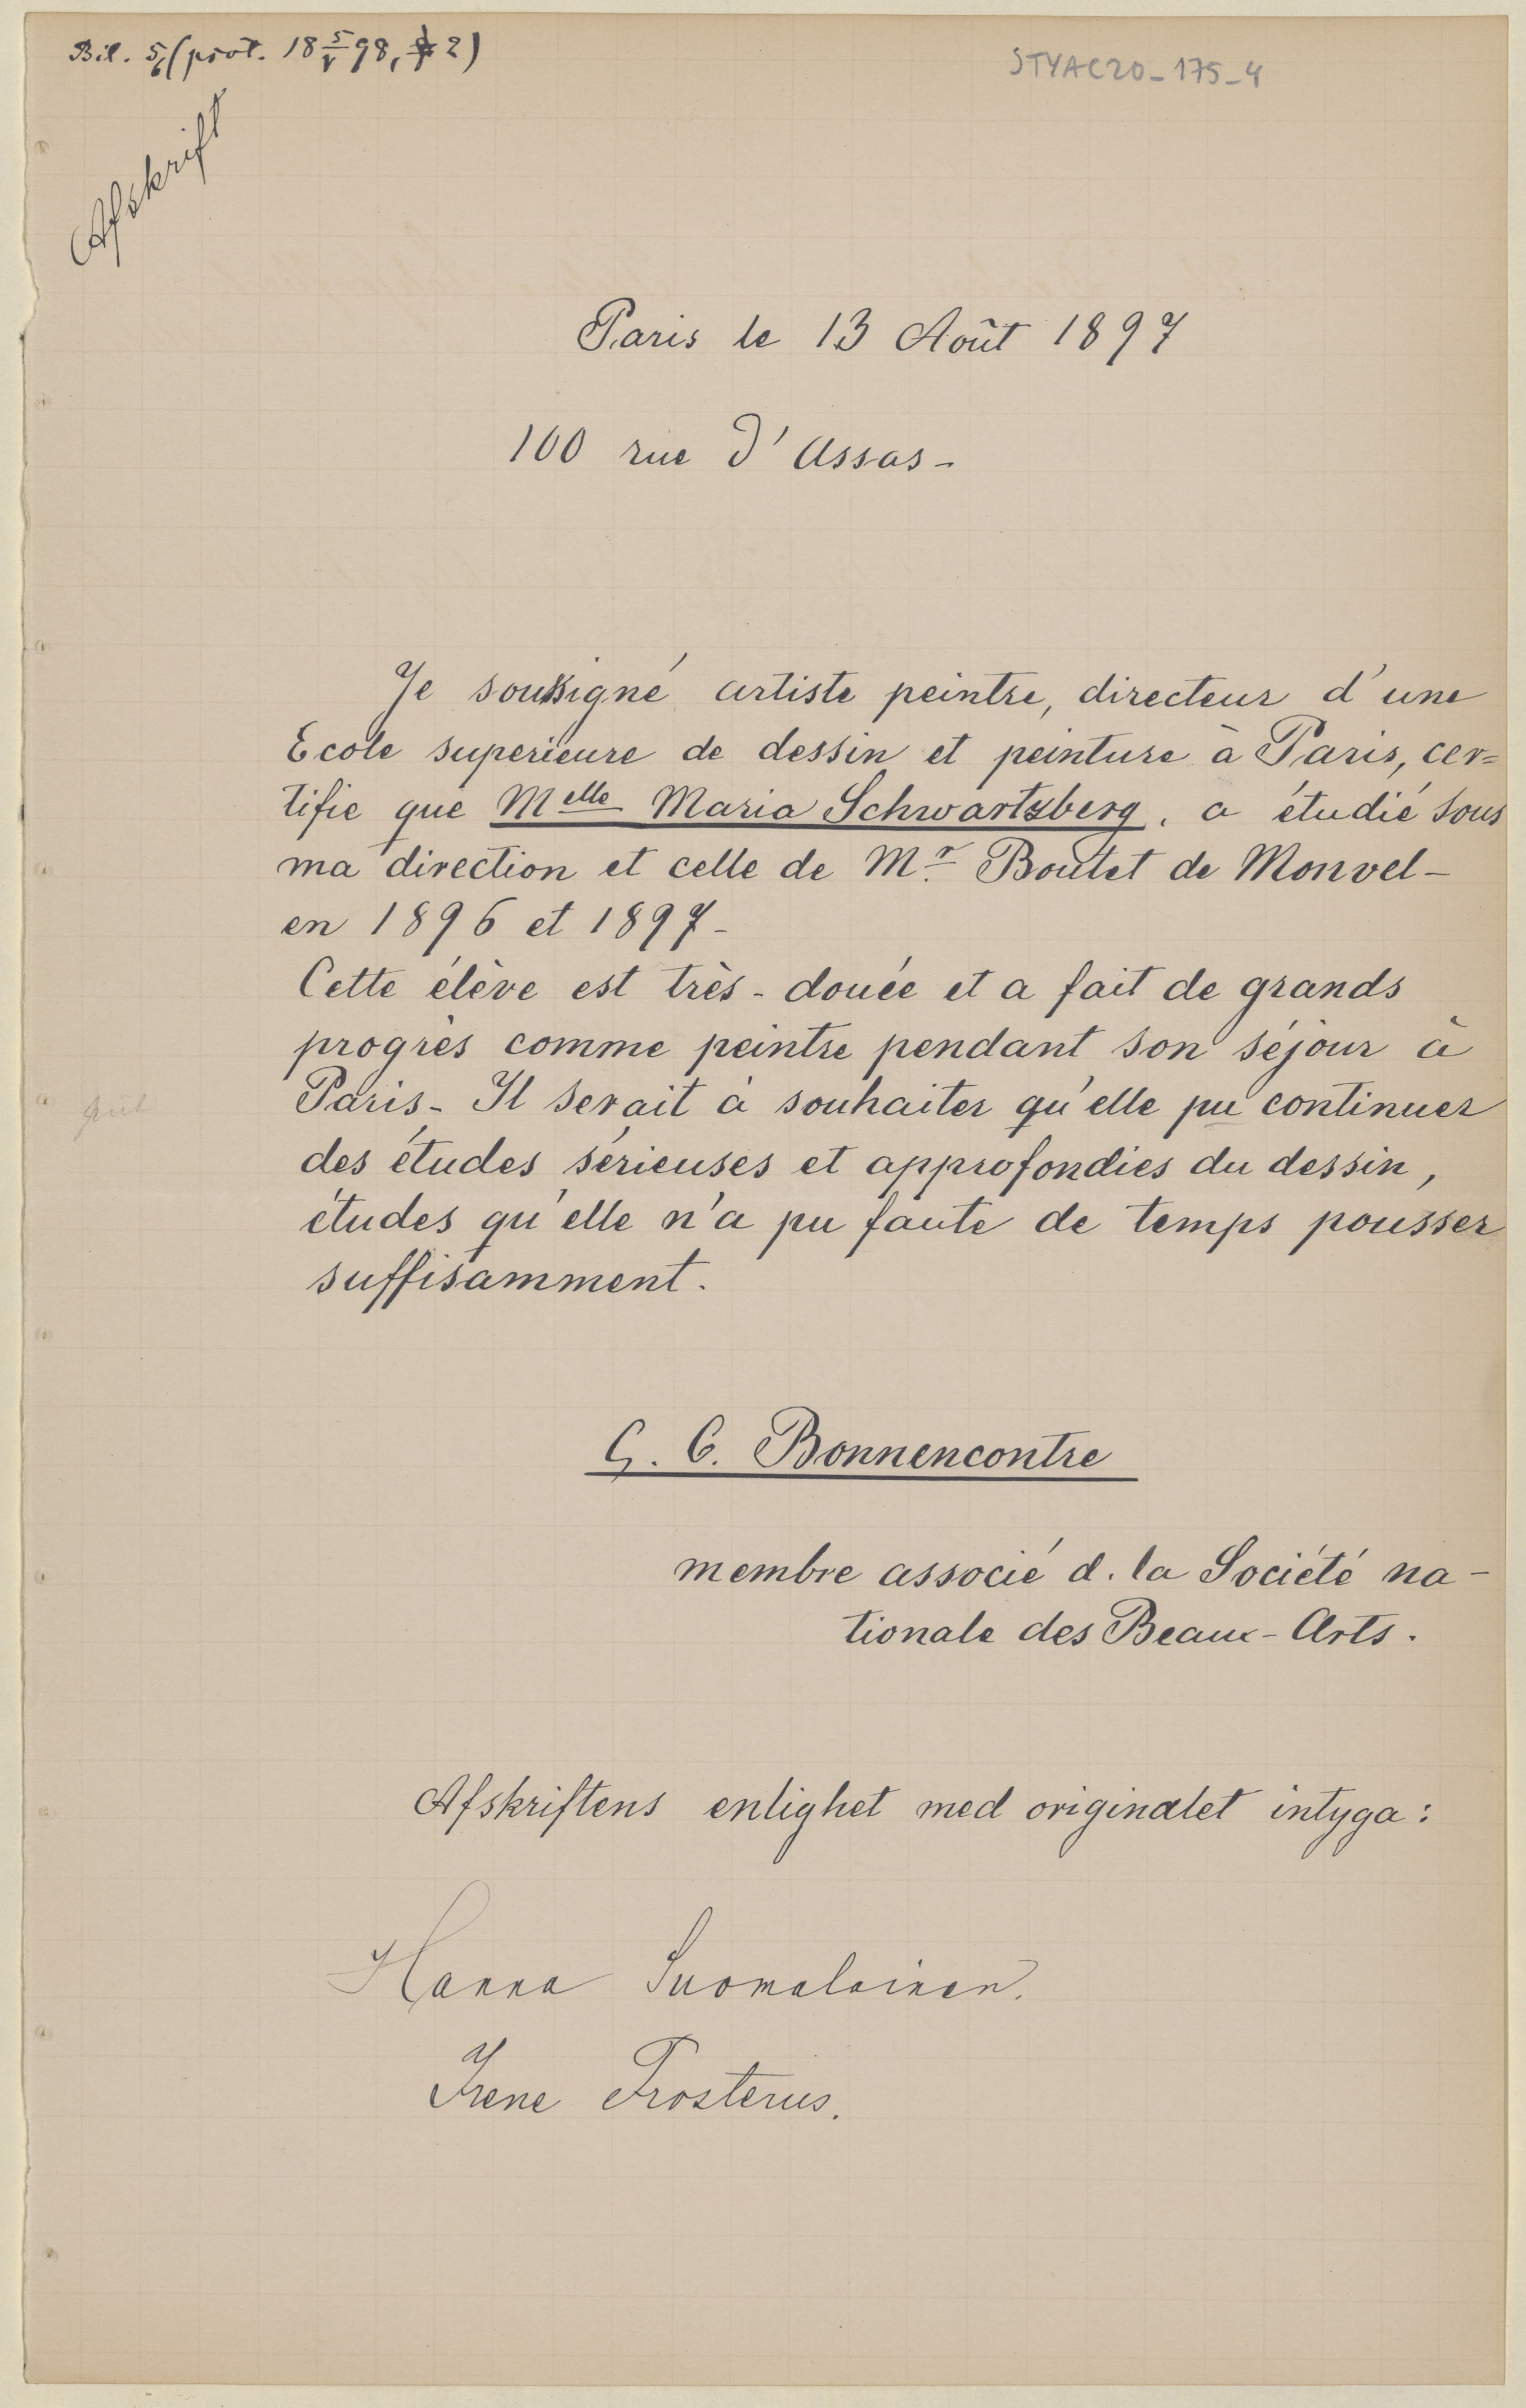 Bil. 5/6 (prot. 18 5/V 98, § 2)
STYAC20_175_4
Afskrift
Paris le 13 Août 1897
100 rue d'Assas -
Je soussigné artiste peintre, directeur d'une
Ecole superieure de dessin et peinture à Paris, cer=
tifie que Melle Maria Schwartzberg, a étudié sous
ma direction et celle de Mr. Boutet de Monvel -
en 1896 et 1897 -
Cette élève est très - douée et a fait de grands
progrès comme peintre pendant son séjour à
Paris - Il serait à souhaiter qu'elle pu continuer
pût
des études sérieuses et approfondies du dessin,
études qu'elle n'a pu faute de temps pousser
suffisamment.
G. C. Bonnencontre
membre associé d. la Société na -
tionale des Beaux - Arts.
Afskriftens enlighet med originalet intyga:
Hanna Suomalainen.
Irene Frosterus.